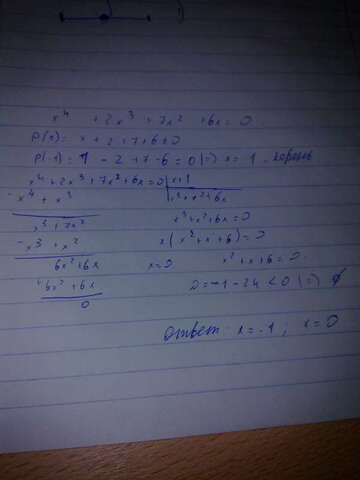 x⁴ + 2x³ + 7x² + 6x = 0
P(x) = x + 2 + 7 + 6 ≠ 0
P(-1) = 1 - 2 + 7 - 6 = 0 (=) x = 1 корень
x⁴ + 2x³ + 7x² + 6x = 0 | x+1
- x⁴ + x³
x³ + x² + 6x
x³ + 7x²
x³ + x² + 6x = 0
- x³ + x²
x(x² + x + 6) = 0
6x² + 6x
x = 0
x² + x + 6 = 0
6x² + 6x
D = 1 - 24 < 0 (=) ∅
0
ответ: x = -1; x = 0